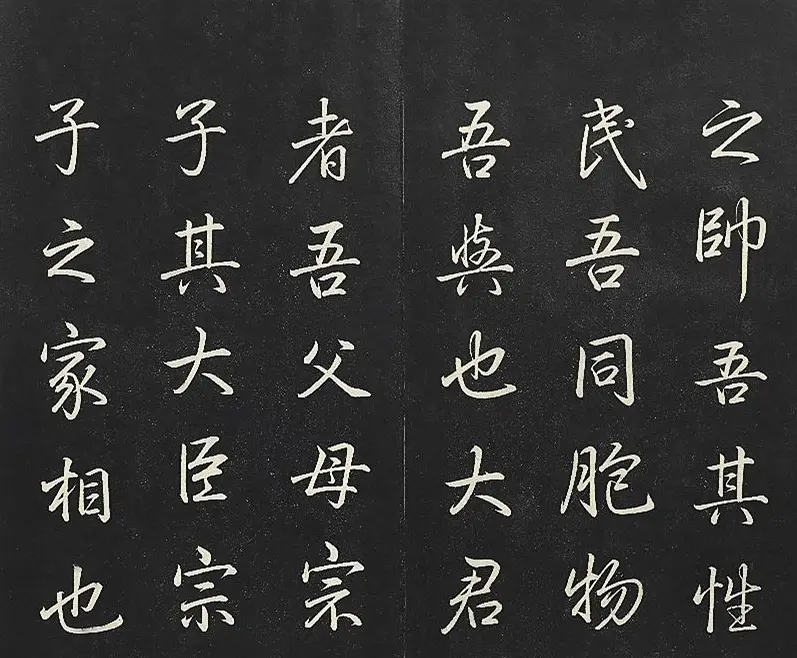 之帥吾其性
民吾同胞物
吾與也大君
者吾父母宗
子其大臣宗
子之家相也